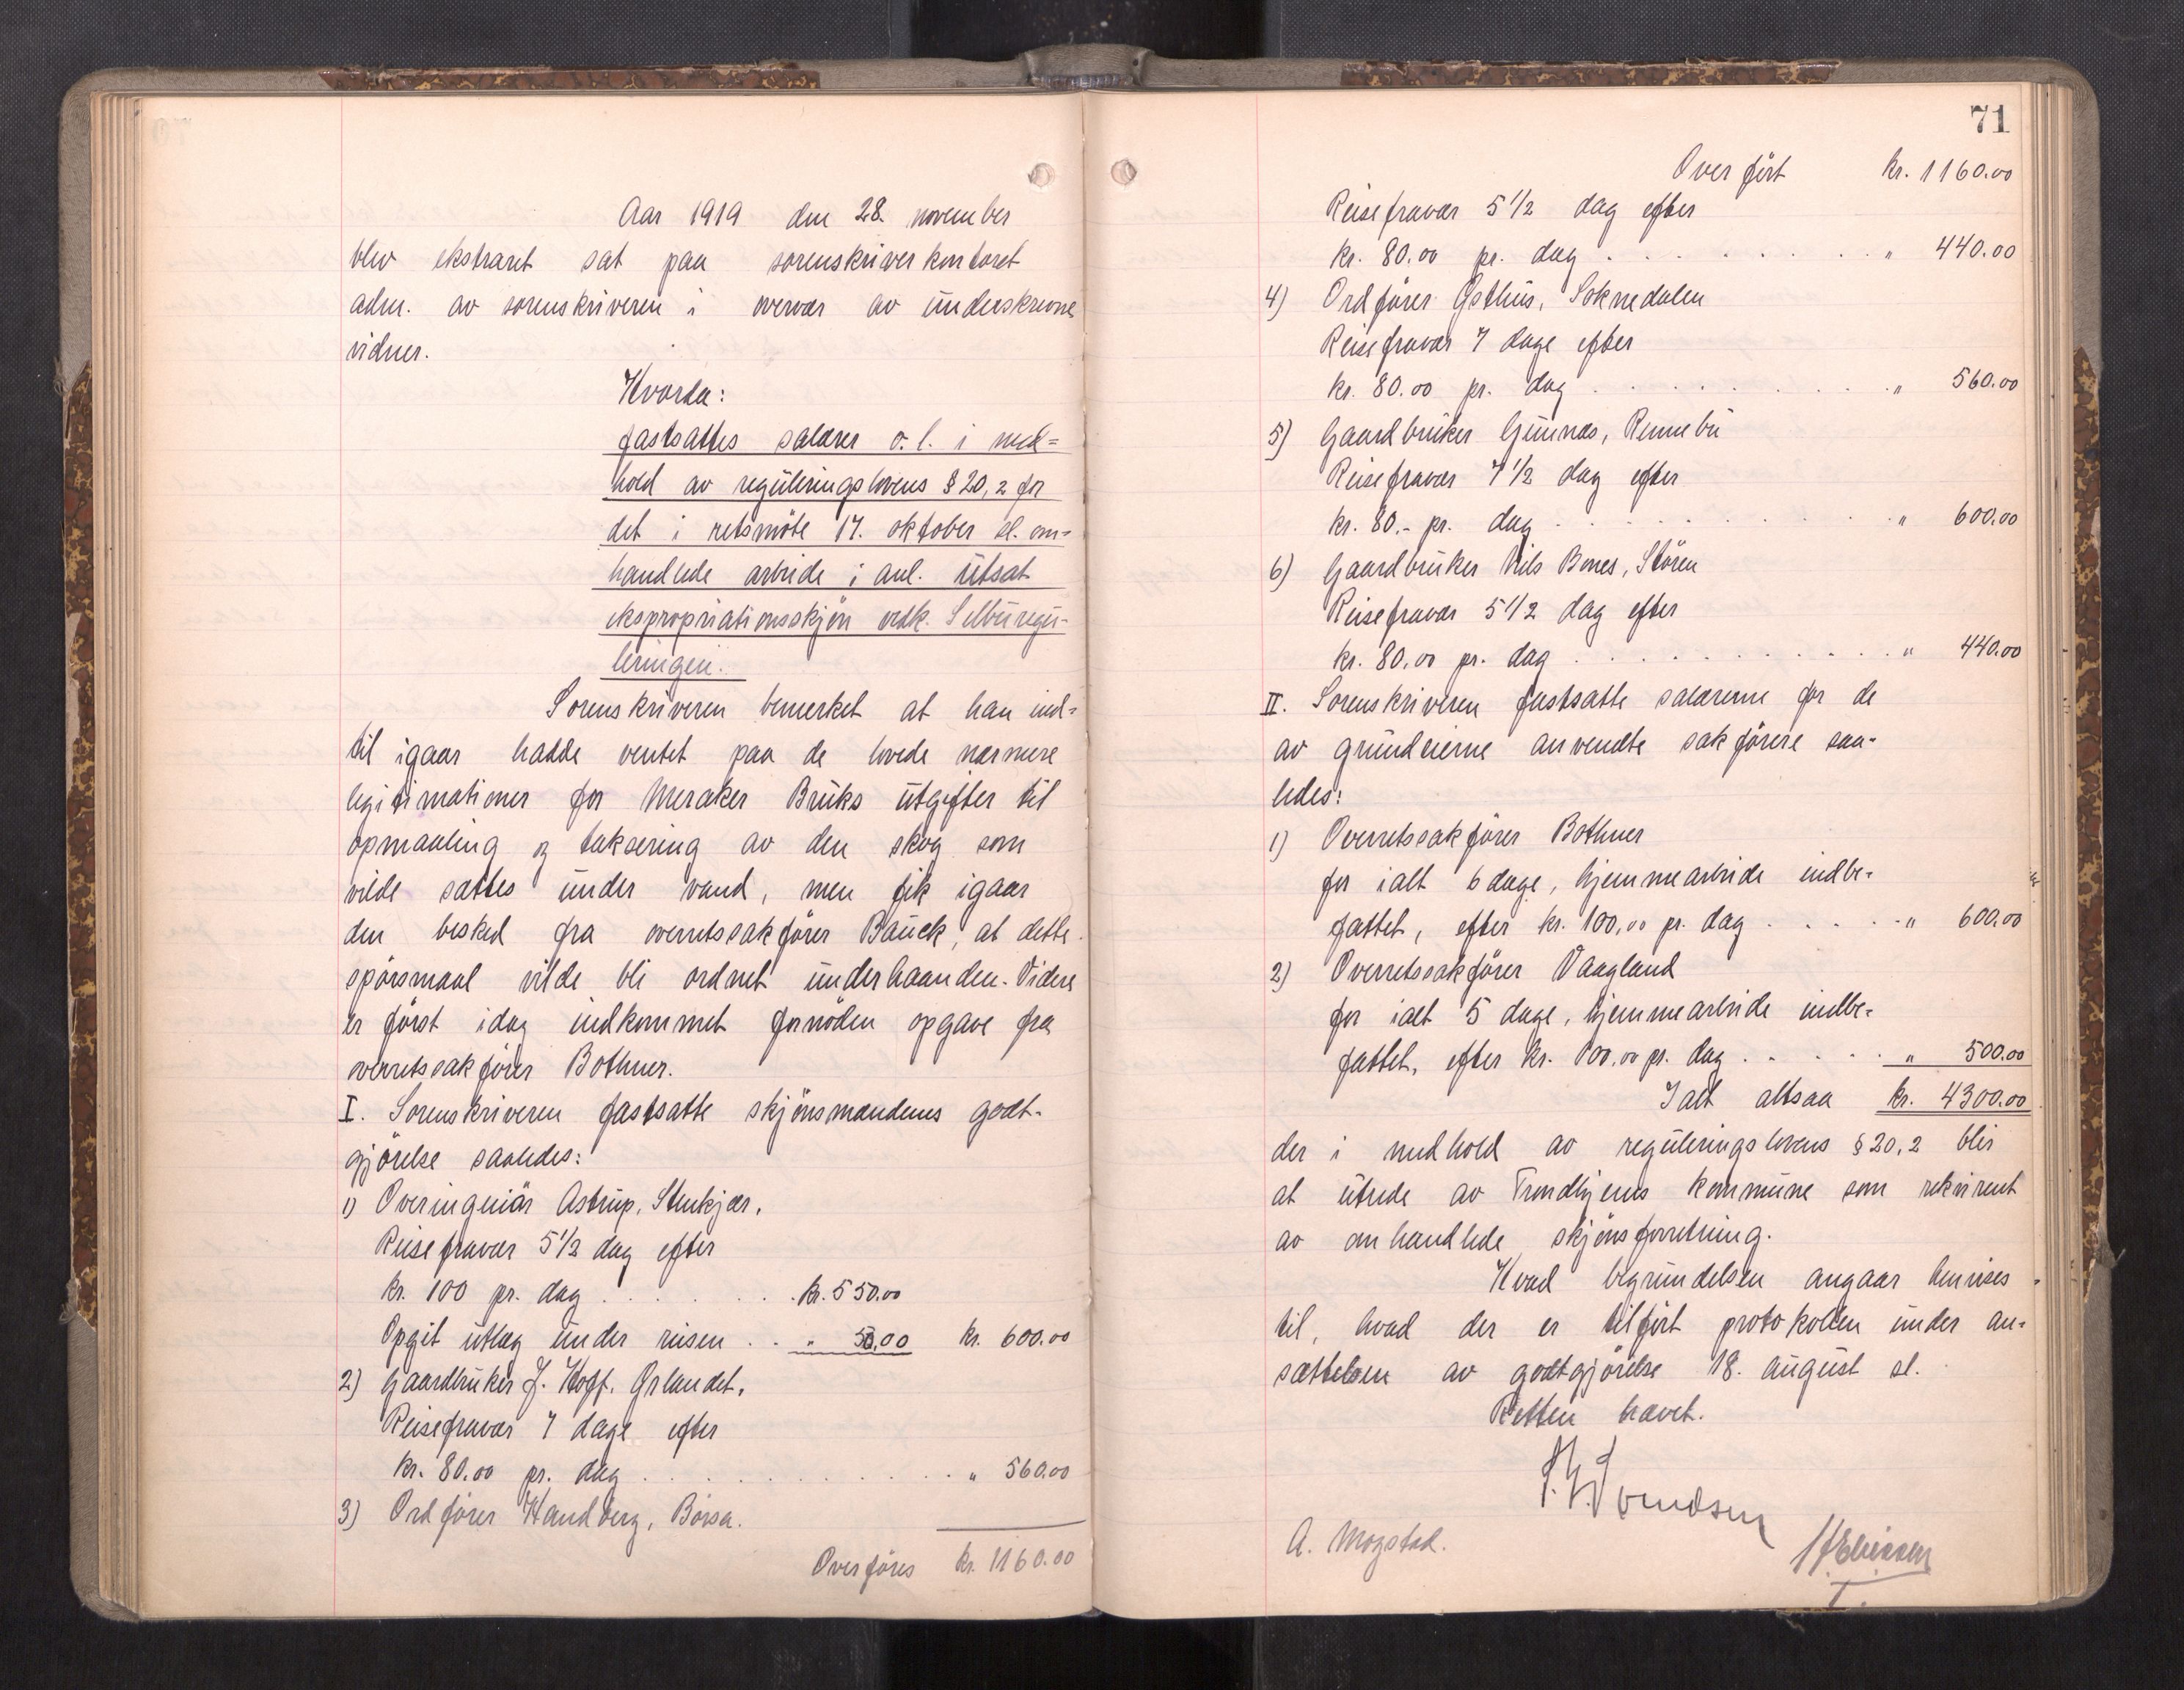 Aar 1919 den 28. november
blev ekstraret sat paa sorenskriverkontoret
adm. av sorenskriveren i overvær av underskrevne
vidner.
Hvorda:
fastsattes salærer o. l. i med=
hold av reguleringslovens § 20,2 for
det i retsmöte 17. oktober sl. om-
handlede arbeide i anl. utsat
ekspropriationsskjön vedk. Selburegu-
leringen.
Sorenskriveren bemerket at han ind=
til igaar hadde ventet paa de lovede nærmere
legitimationer for Meraker Bruks utgifter til
opmaaling og taksering av den skog som
vilde sættes under vand, men fik igaar
den besked fra overretssakförer Bauck, at dette
spörsmaal vilde bli ordnet underhaanden. Videre
er först idag indkommet fornöden opgave fra
overretssakförer Bothner.
I. Sorenskriveren fastsatte skjönsmændenes godt-
gjörelse saaledes:
1) Overingeniör Astrup, Stenkjær.
Reisefravær 5 1/2 dag efter
kr. 100 pr. dag . . . . . . . kr. 550.00
Opgit utlæg under reisen . . " 50,00 kr. 600.00
2) Gaardbruker J. Hoff, Ørlandet.
Reisefravær 7 dage efter
kr. 80.00 pr. dag . . . . . . . . . . . . " 560.00
3) Ordförer Handberg, Börsa.
Overföres kr. 1160.00
71
Overfört kr. 1160.00
Reisefravær 5 1/2 dag efter
kr. 80.00 pr. dag . . . . . . . . . . " 440.00
4) Ordförer Østhus, Soknedalen
Reisefravær 7 dage efter
kr. 80.00 pr. dag . . . . . . . . . . " 560.00
5) Gaardbruker Gunnes, Rennebu
Reisefravær 7 1/2 dag efter
kr. 80.- pr. dag . . . . . . . . . . " 600.00
6) Gaardbruker Nils Bones, Stören
Reisefravær 5 1/2 dag efter
kr. 80.00 pr. dag . . . . . . . . . . " 440.00
II. Sorenskriveren fastsatte salærerne for de
av grundeierne anvendte sakförere saa-
ledes:
1) Overretssakförer Bothner
for ialt 6 dage, hjemmearbeide indbe-
fattet, efter kr. 100,00 pr. dag . . . . . " 600.00
2) Overretssakförer Vaagland
for ialt 5 dage, hjemmearbeide indbe-
fattet, efter kr. 100,00 pr. dag . . . . . " 500.00
Ialt altsaa kr. 4300.00
der i medhold av reguleringslovens § 20,2 blir
at utrede av Trondhjems kommune som rekvirent
av omhandlede skjönsforretning.
Hvad begrundelsen angaar henvises
til, hvad der er tilfört protokollen under an-
sættelsen av godtgjörelse 18. august sl.
Retten hævet.
Svendsen
A. Mogstad.